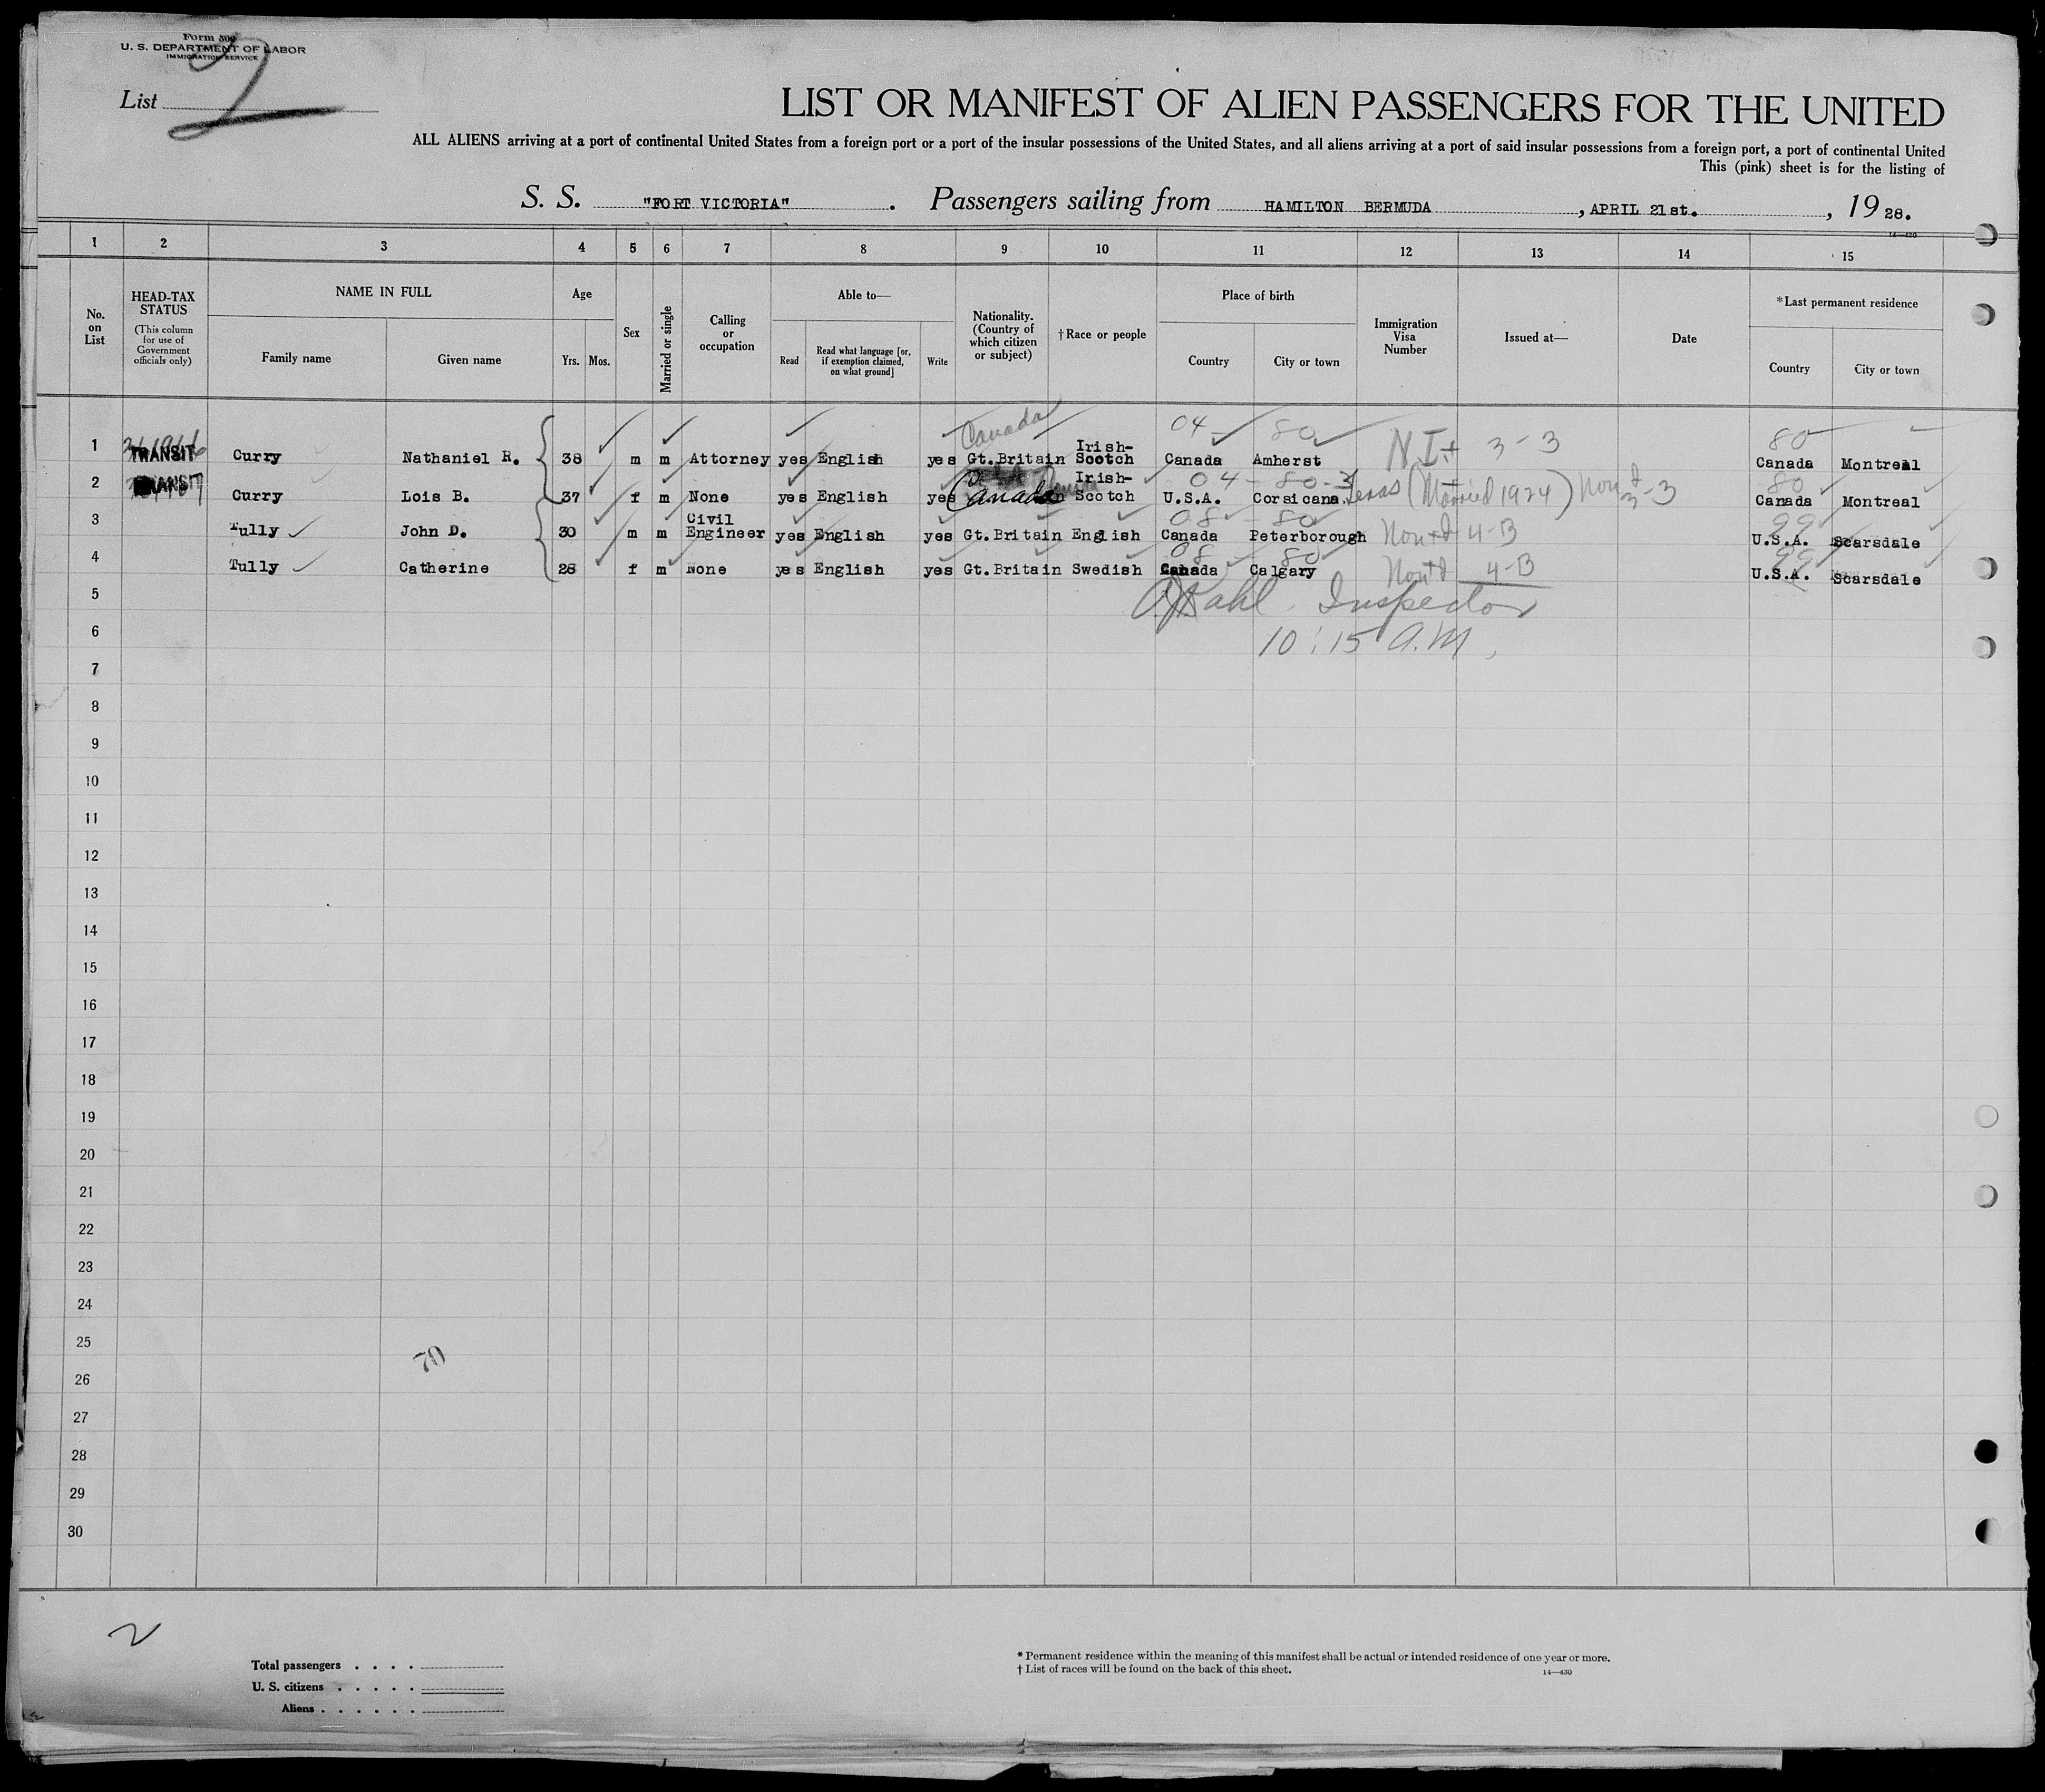 Form 500
U. S. DEPARTMENT OF LABOR
IMMIGRATION SERVICE
List 2
LIST OR MANIFEST OF ALIEN PASSENGERS FOR THE UNITED
ALL ALIENS arriving at a port of continental United States from a foreign port or a port of the insular possessions of the United States, and all aliens arriving at a port of said insular possessions from a foreign port, a port of continental United
This (pink) sheet is for the listing of
S. S. "FORT VICTORIA". Passengers sailing from HAMILTON BERMUDA, APRIL 21st., 1928.
14—430
1 2 3 4 5 6 7 8 9 10 11 12 13 14 15
No. on List
HEAD-TAX STATUS
(This column for use of Government officials only)
NAME IN FULL
Family name Given name
Age
Yrs. Mos.
Sex
Married or single
Calling or occupation
Able to—
Read
Read what language [or, if exemption claimed, on what ground]
Write
Nationality. (Country of which citizen or subject)
†Race or people
Place of birth
Country City or town
Immigration Visa Number
Issued at—
Date
*Last permanent residence
Country City or town
Canada 04 - 80 80
1 TRANSIT Curry Nathaniel R. 38 m m Attorney yes English yes Gt.Britain Irish-Scotch Canada Amherst N.I.+ 3-3 Canada Montreal
04 - 80-3 80
2 TRANSIT Curry Lois B. 37 f m None yes English yes Canada Irish-Scotch U.S.A. Corsicana. Texas (Married 1924) 3-3 Canada Montreal
08 - 80 99
3 Tully John D. 30 m m Civil Engineer yes English yes Gt.Britain English Canada Peterborough 4-B U.S.A. Scarsdale
08 - 80 99
4 Tully Catherine 28 f m None yes English yes Gt.Britain Swedish Canada Calgary 4-B U.S.A. Scarsdale
5 Inspector
6 10:15 A.M.
7
8
9
10
11
12
13
14
15
16
17
18
19
20
21
22
23
24
25
70
26
27
28
29
30
2
Total passengers . . . .
U. S. citizens . . . . .
Aliens . . . . . .
* Permanent residence within the meaning of this manifest shall be actual or intended residence of one year or more.
† List of races will be found on the back of this sheet.
14—430